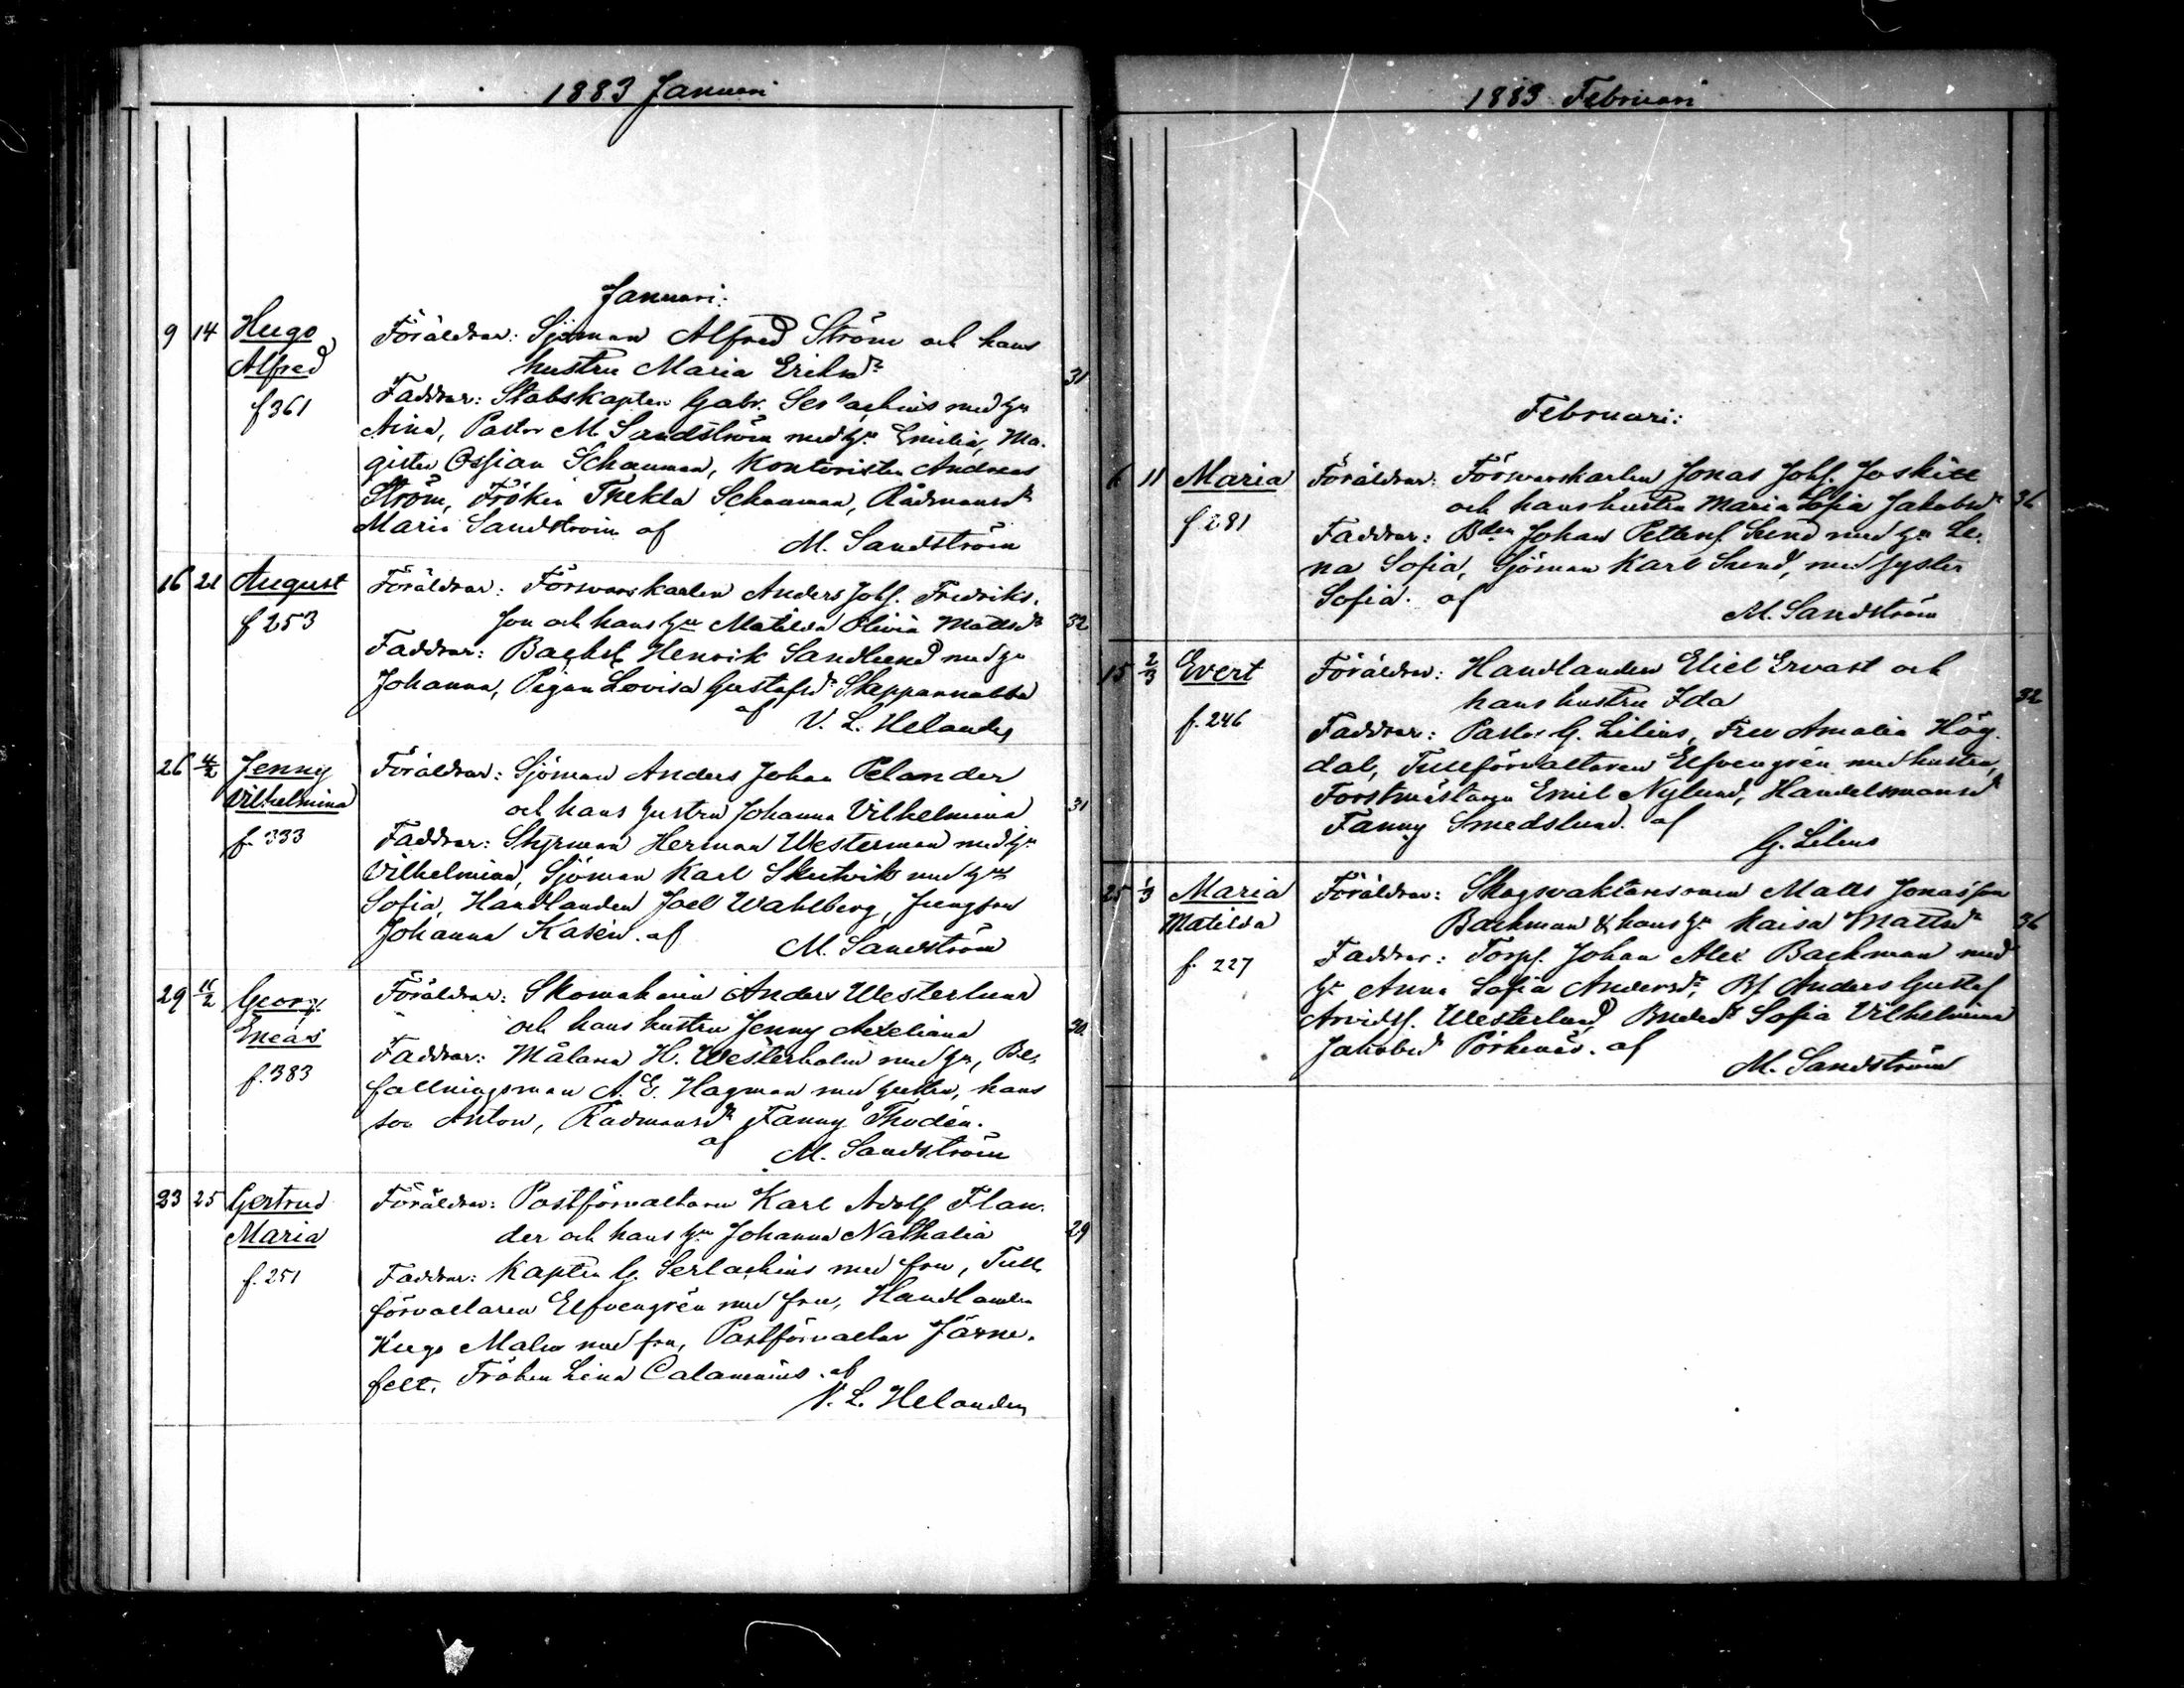 1883 Januari
Januari:
9 14 Hugo Föräldrar: Sjöman Alfred Ström och hans
Alfred hustru Maria Eriksdr 31
f 361 Faddrar: Stabskapten Gabr. Serlachius med hu
Aina, Pastor M. Sandström med hu Emilia, Ma-
gister Ossian Schauman, Kontoristen Andreas
Ström, Fröken Thekla Schauman, Rådmansdr
Maria Sandström af M. Sandström
16 21 August Föräldrar: Försvarskarlen Anders Johs. Fredriks-
f 253 son och hans hu Matilda Olivia Mattsdr 32
Faddrar: Backst Henrik Sandlund med hu
Johanna, Pigan Lovisa Gustafsdr Skeppannabba
af V. L. Helander
26 4/2 Jenny Föräldrar: Sjöman Anders Johan Pelander
Vilhelmina och hans hustru Johanna Vilhelmina 31
f. 333 Faddrar: Styrman Herman Westerman med hu
Vilhelmina, Sjöman Karl Skutvik med hu
Sofia, Handlanden Joel Wahlberg, Jungfru
Johanna Kasén. af M. Sandström
29 11/2 Georg Föräldrar: Skomakaren Anders Westerlund
Eneas och hans hustru Jenny Axeliana 30
f. 383 Faddrar: Målaren H. Westerholm med hu, Be-
fallningsman A. E. Hagman med hustru, hans
son Anton, Rådmansdr Fanny Thodén.
af M. Sandström
23 25 Gertrud Föräldrar: Postförvaltaren Karl Adolf Flan-
Maria der och hans hu Johanna Nathalia 29
f. 251 Faddrar: Kapten G. Serlachius med fru, Tull-
förvaltaren Elfvengrén med fru, Handlanden
Hugo Malm med fru, Postförvaltar Järne-
felt, Fröken Lina Calamnius. af
V. L. Helander
1883 Februari
Februari:
6 11 Maria Föräldrar: Försvarskarlen Jonas Johs. Joskitt
f 281 och hans hustru Maria Sofia Jakobsdr 36
Faddrar: Bden Johan Petters Sund med hu Le-
na Sofia, Sjöman Karl Sund, med syster
Sofia. af M. Sandström
15 2/3 Evert Föräldrar: Handlanden Eliel Ervast och
hans hustru Ida 32
f. 246 Faddrar: Pastor G. Lilius, Fru Amalia Hög-
dal, Tullförvaltaren Elfvengrén med hustru,
Forstmästaren Emil Nylund, Handelsmansdr
Fanny Smedslund. af
G. Lilius
25 1/3 Maria Föräldrar: Skogsvaktaresonen Matts Jonasson
Matilda Backman & hans hu Kaisa Mattsdr 36
f. 227 Faddrar: Torps. Johan Alex Backman med
hu Anna Sofia Andersdr, Bs Anders Gustaf
Arvidss. Westerlund, Bndedr Sofia Vilhelmina
Jakobsdr Pörkenäs. af
M. Sandström